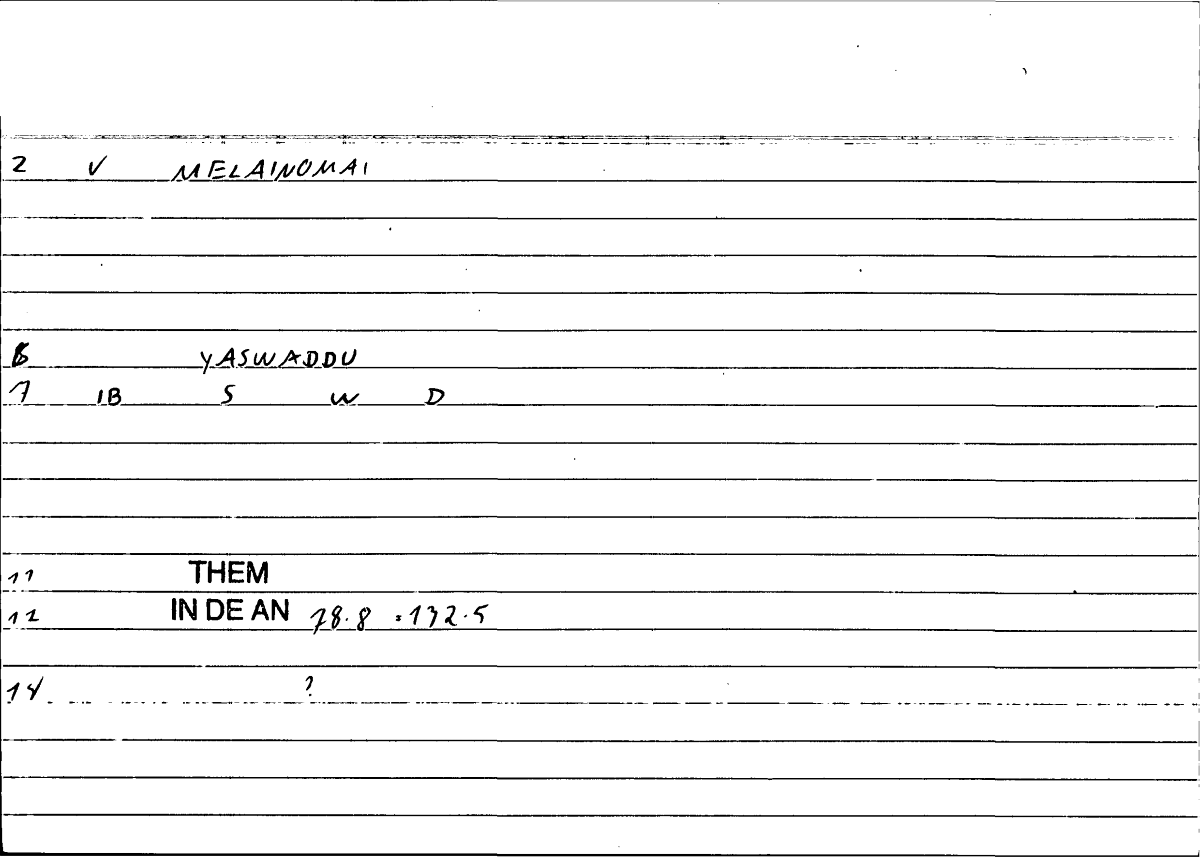 2 V MELAINOMAI
6 YASWADDU
7 IB S W D
11 THEM
12 IN DE AN 78.8 = 132.5
14 ?